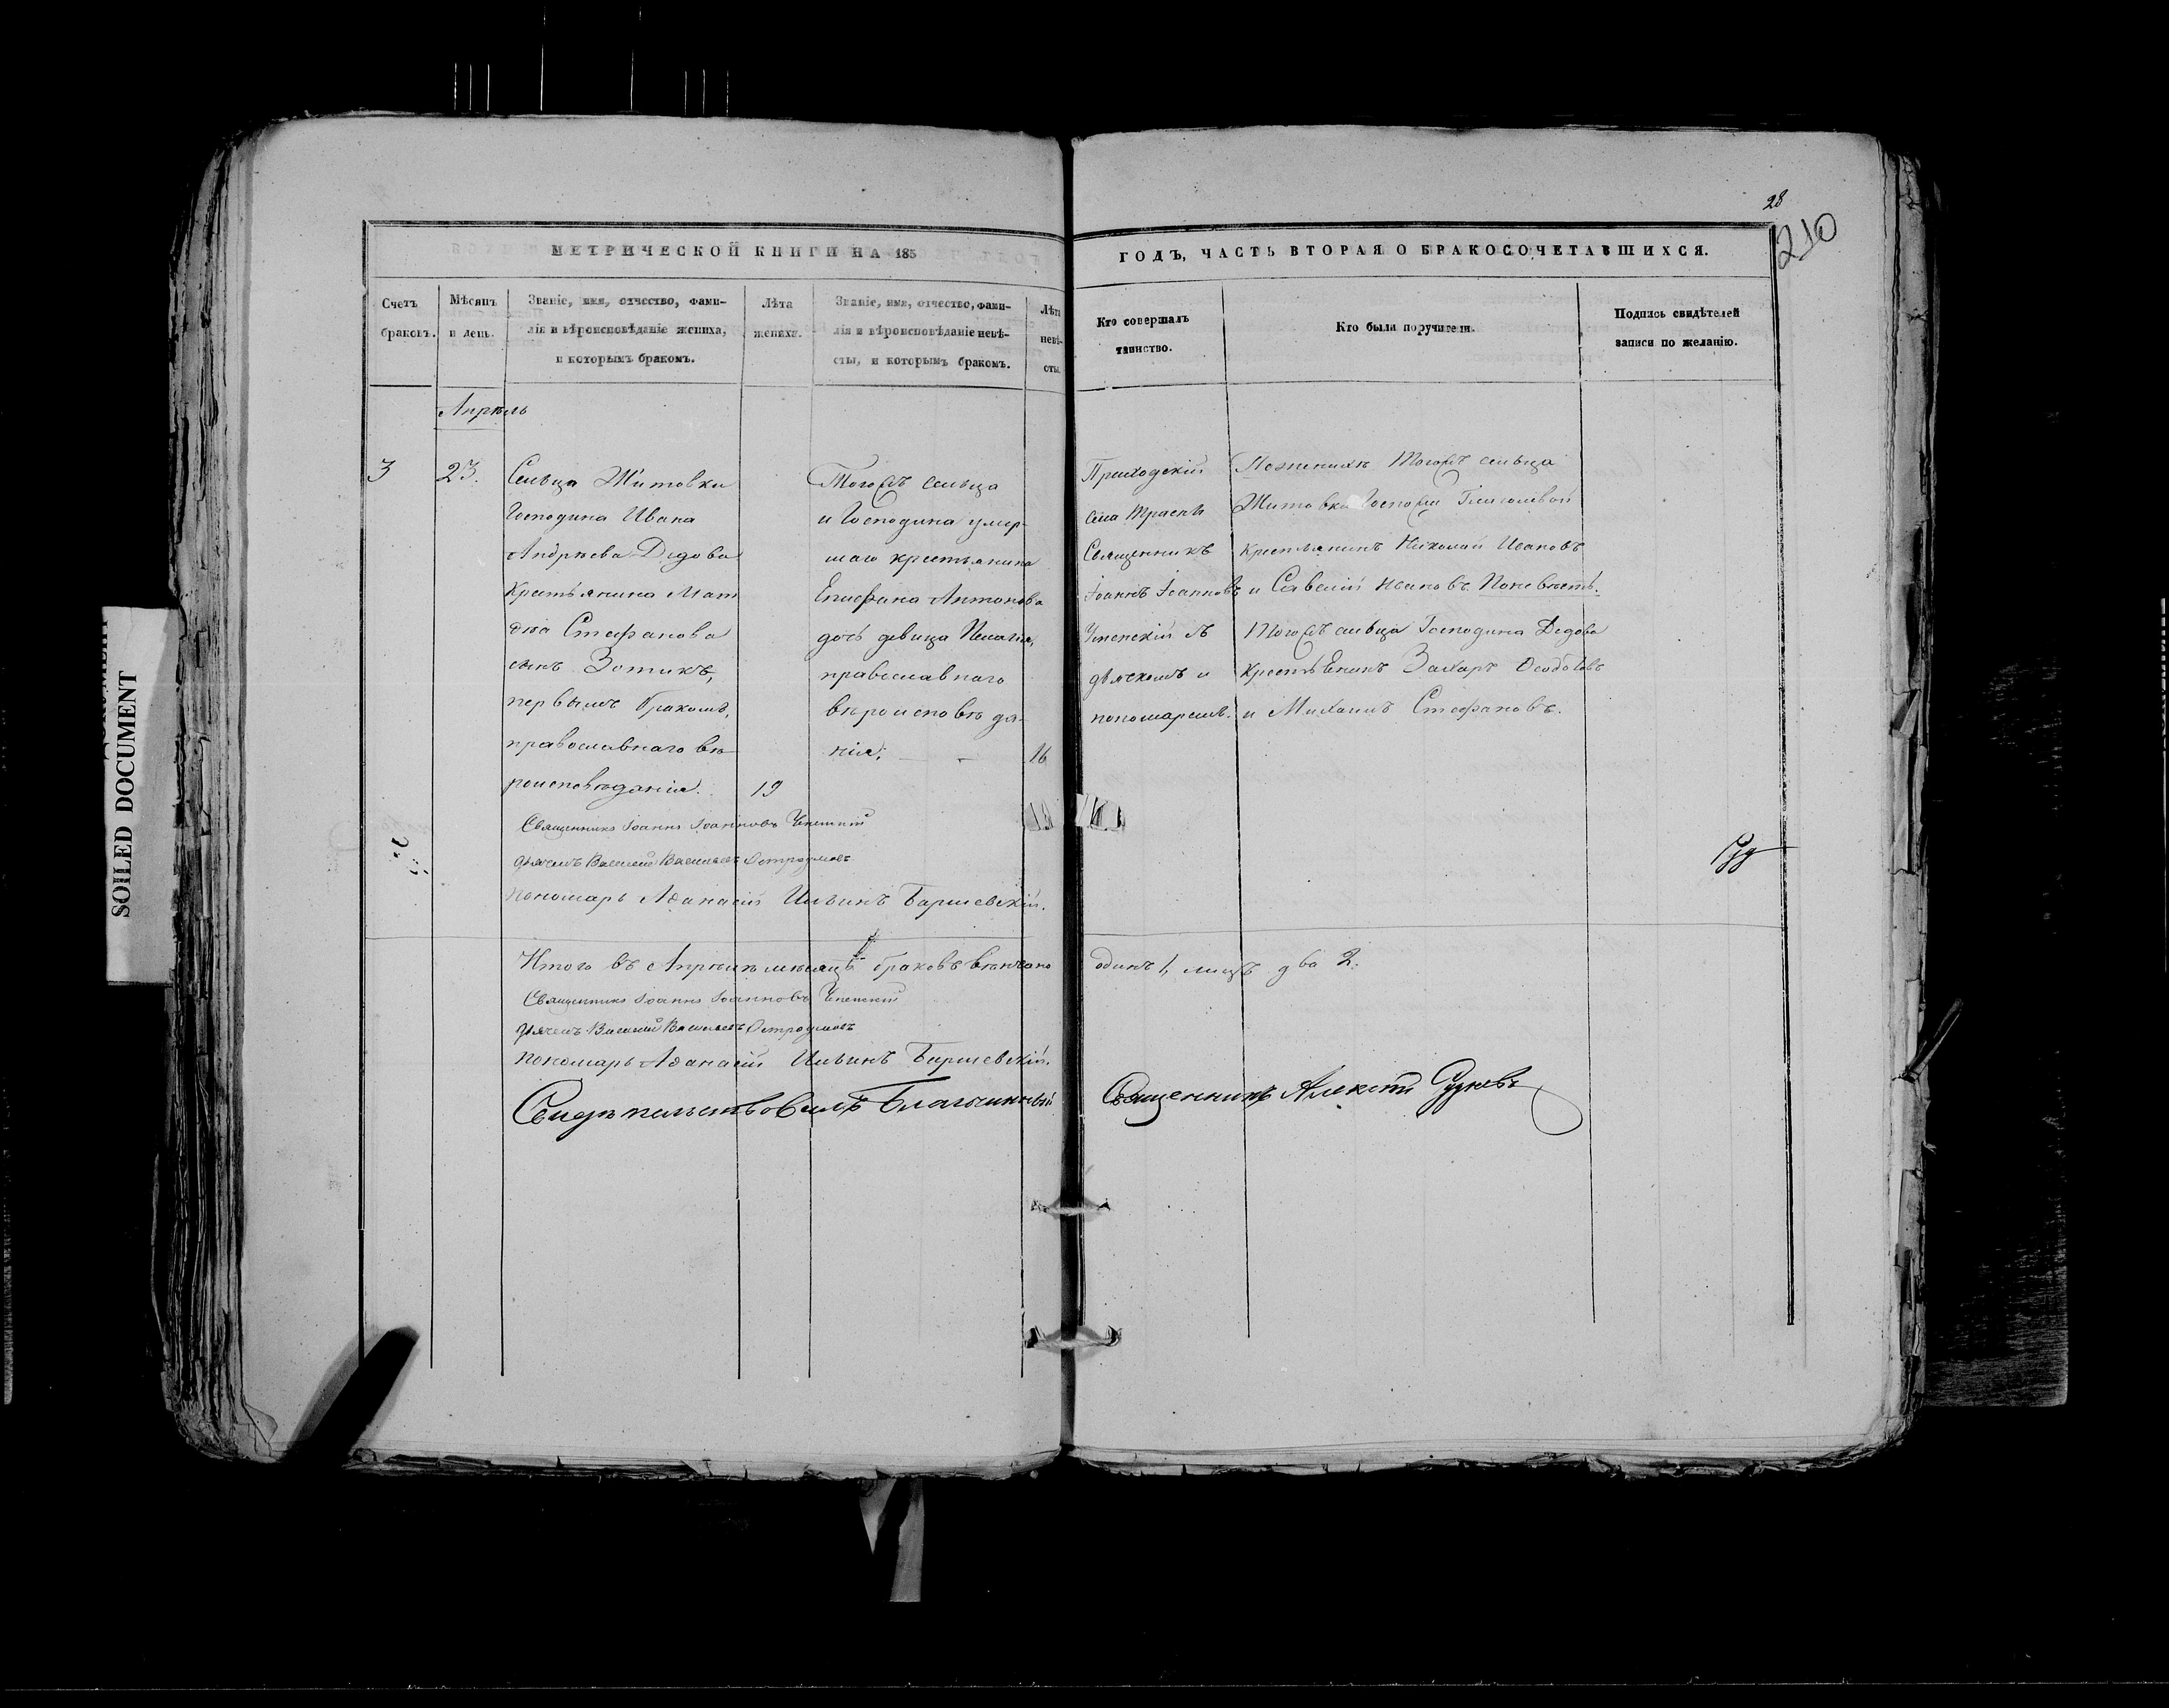 28
210
МЕТРИЧЕСКОЙ КНИГИ НА 185
ГОДЪ, ЧАСТЬ ВТОРАЯ О БРАКОСОЧЕТАВШИХСЯ.
Счетъ
браковъ.
Мѣсяцъ
и день.
Званіе, имя, отчество, фами-
лія и вѣроисповѣданіе жениха,
и которымъ бракомъ.
Лѣта
жениха.
Званіе, имя, отчество, фами-
лія и вѣроисповѣданіе невѣ-
сты, и которымъ бракомъ.
Лѣта
невѣ-
сты.
Кто совершалъ
таинство.
Кто были поручители.
Подпись свидѣтелей
записи по желанію.
Апрѣль
3
23.
Сельца Житовки
Господина Ивана
Андрѣева Дедова
крестьянина Мат
Стефанова
сынъ Зотикъ,
первымъ бракомъ,
православнаго вѣ
роисповѣданія.
19
Тогожъ сельца
и Господина умер-
шаго крестьянина
Епифана Антонова
дочь девица Пелагія,
православнаго
вѣроисповѣда-
нія;
16
Приходскій
села
Священникъ
Іоаннъ Іоанновъ
Успенскій съ
дьячкомъ и
пономаремъ.
Поженихѣ тогожъ сельца
Житовки Госпожи
крестьянинъ Николай Ивановъ
и Савелій Ивановъ. Поневѣстѣ.
Тогожъ сельца Господина Дедова
крестьЕнинъ Захаръ
и Михаилъ Стефановъ.
Священникъ Іоаннъ Іоанновъ Успенскій
дьячекъ Василій Васильевъ Остроумовъ
пономарь Аѳанасій Ильинъ Баршевскій.
Итого въ Апрѣлѣ мѣсяцѣ браковъ вѣнчано
одинъ 1, лицъ два 2.
Священникъ Іоаннъ Іоанновъ Успенскій
дьячекъ Василій Васильевъ Остроумовъ
пономарь Аѳанасій Ильинъ Баршевскій.
Свидѣтельствовалъ Благочинный
Священникъ Алексѣй Рудневъ
SOILED DOCUMENT